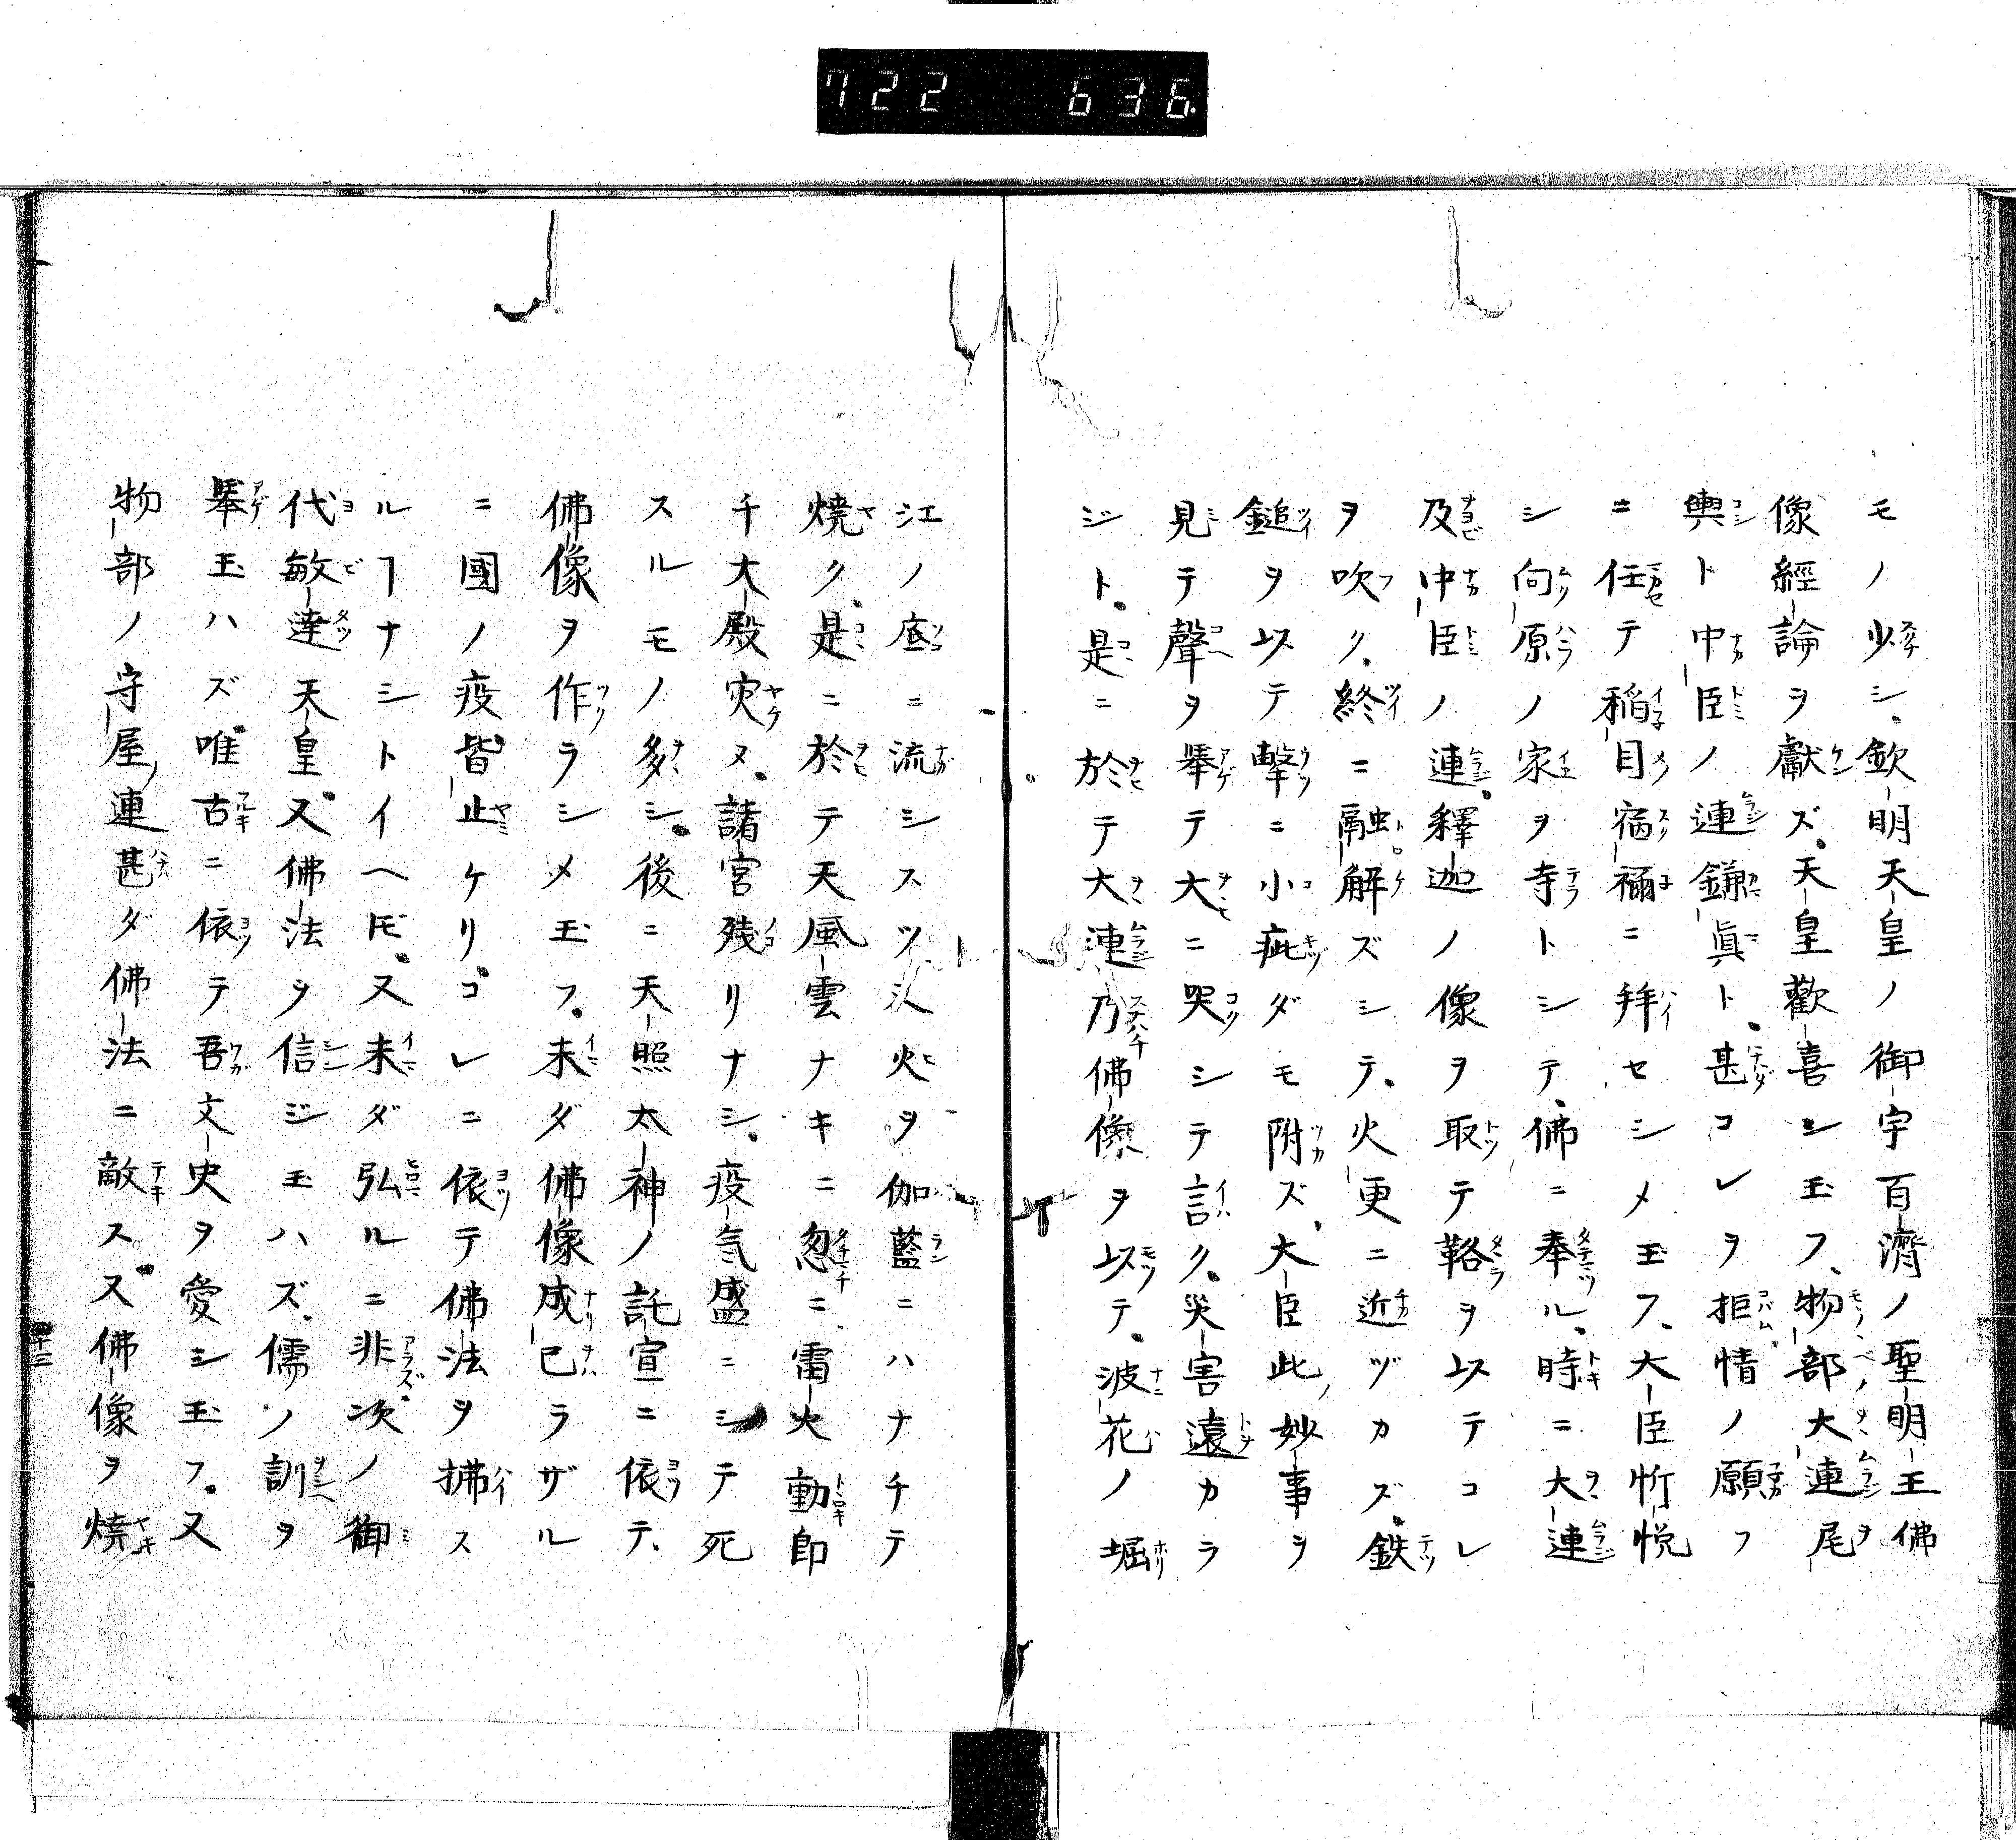 722 636
モノ少シ欽明天皇ノ御宇百濟ノ聖明王佛
像經論ヲ獻ズ天皇歡喜シ玉フ物部大連尾
輿ト中臣ノ連鎌眞ト甚コレヲ拒情ノ願フ
ニ任テ稲目宿禰ニ拜セシメ玉フ大臣忻悦
シ向原ノ家ヲ寺トシテ佛ニ奉ル時ニ大連
及中臣ノ連釋迦ノ像ヲ取テ鞴ヲ以テコレ
ヲ吹ク終ニ融解ズシテ火更ニ近ヅカズ鉄
鎚ヲ以テ擊ニ小疵ダモ附ズ大臣此妙事ヲ
見テ聲ヲ擧テ大ニ哭シテ言ク災害遠カラ
ジト是ニ於テ大連乃佛像ヲ以テ波花ノ堀
江ノ底ニ流シスツ又火ヲ伽藍ニハナチテ
燒ク是ニ於テ天風雲ナキニ忽ニ雷火動即
チ大殿灾ヌ諸宮残リナシ疫气盛ニシテ死
スルモノ多シ後ニ天照太神ノ託宣ニ依テ
佛像ヲ作ラシメ玉フ未ダ佛像成已ラザル
ニ國ノ疫皆止ケリコレニ依テ佛法ヲ拂ス
ルヿナシトイヘ𪜈又未ダ弘ルニ非次ノ御
代敏達天皇又佛法ヲ信ジ玉ハズ儒ノ訓ヲ
擧玉ハズ唯古ニ依テ吾文史ヲ愛シ玉フ又
物部ノ守屋連甚ダ佛法ニ敵ス又佛像ヲ燒
十三